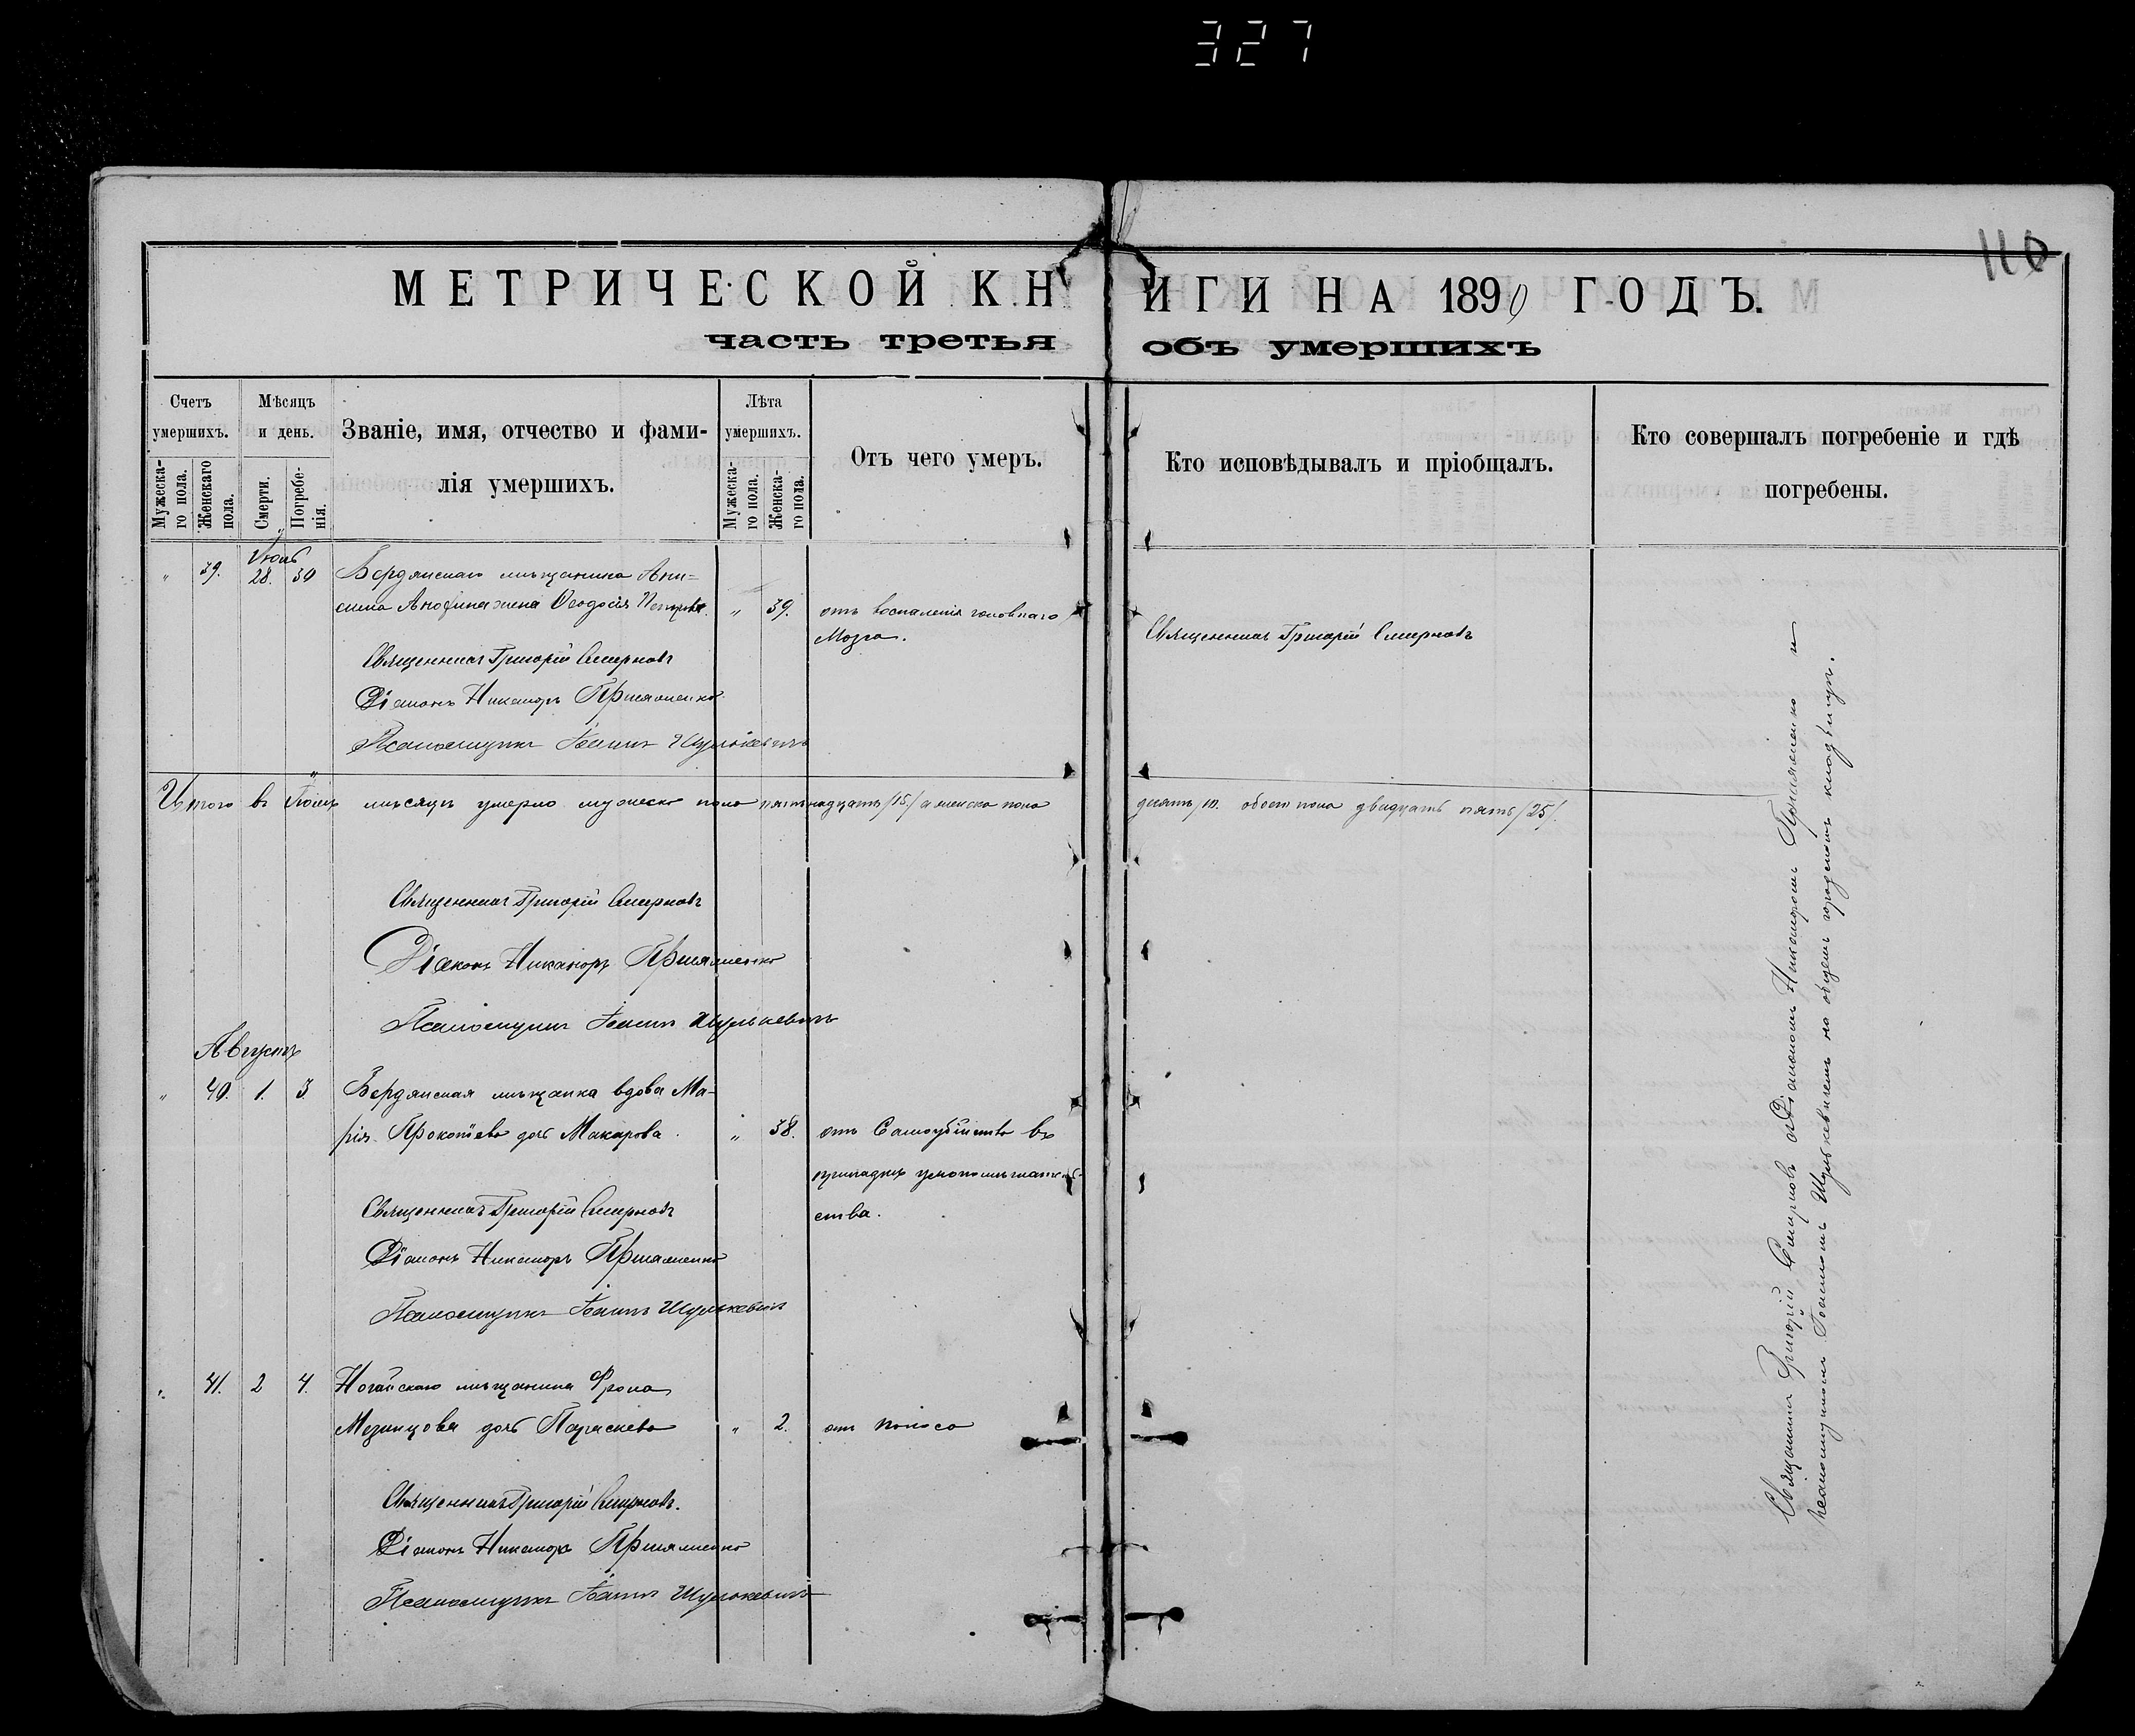 327
110
МЕТРИЧЕСКОЙ КНИГИ НА 1890 ГОДЪ.
часть третья объ умершихъ
Счетъ умершихъ.
Мужеска-го пола.
Женскаго пола.
Мѣсяцъ и день.
Смерти.
Погребе-нія.
Званіе, имя, отчество и фами-
лія умершихъ.
Лѣта умершихъ.
Мужеска-го пола.
Женска-го пола.
Отъ чего умеръ.
Кто исповѣдывалъ и пріобщалъ.
Кто совершалъ погребеніе и гдѣ
погребены.
Іюль
" 39. 28. 30 Бердянскаго мѣщанина Ани-
сима жена Ѳеодосія " 39. отъ воспаленія головнаго
мозга.
Священникъ Григорій Смирновъ
Священникъ Григорій Смирновъ
Діаконъ Никаноръ
Псаломщикъ Іоаннъ Шулькевичъ
Итого въ Іюлѣ мѣсяцѣ умерло мужеска пола пятнадцать /15/ а женска пола десять /10. обоего пола двадцать пять /25/.
Священникъ Григорій Смирновъ
Діаконъ Никаноръ
Псаломщикъ Іоаннъ Шулькевичъ
Августъ
" 40. 1. 3. Бердянская мѣщанка вдова Ма-
рія Прокопіева дочь Макарова. " 38. отъ Самоубійства въ
припадкѣ умопомѣшатель-
ства.
Священникъ Григорій Смирновъ
Діаконъ Никаноръ
Псаломщикъ Іоаннъ Шулькевичъ
" 41. 2 4. Ногайскаго мѣщанина Фрола
дочь Параскева " 2. отъ поноса
Священникъ Григорій Смирновъ.
Діаконъ Никаноръ
Псаломщикъ Іоаннъ Шулькевичъ
Священникъ Григорій Смирновъ съ Діакономъ Никаноромъ и
псаломщикомъ Іоанномъ Шулькевичемъ на общемъ городскомъ кладбищѣ.